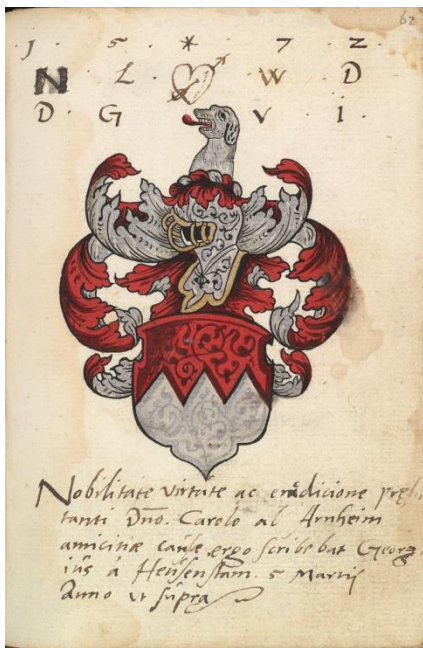 62
1 . 5 . * . 7 . 2 .
N . L . W . D
D . G . V . I .
Nobilitate virtute ac erudicione pręs
tanti Dno. Carolo ab Arnheim
amicitiæ causæ ergo scribebat Georg
ius á Heusenstam. 5 Martij
Anno vt supra